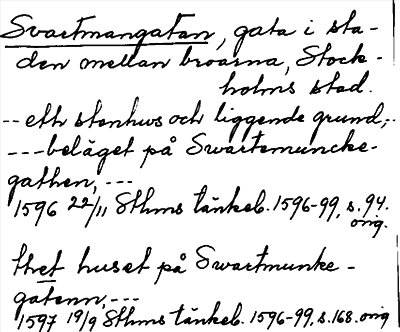 Svartmangatan, gata i sta-
den mellan broarna, Stock-
holms stad.
-- eth stenhws och liggende grund,-
--- beläget på Swartemuncke-
gathen, ---
1596 22/11 Sthms tänkeb. 1596-99, s. 94.
orig.
thet huset på Swartmunke-
gatenn, ---
1597 19/9 Sthms tänkeb. 1596-99, s. 168. orig